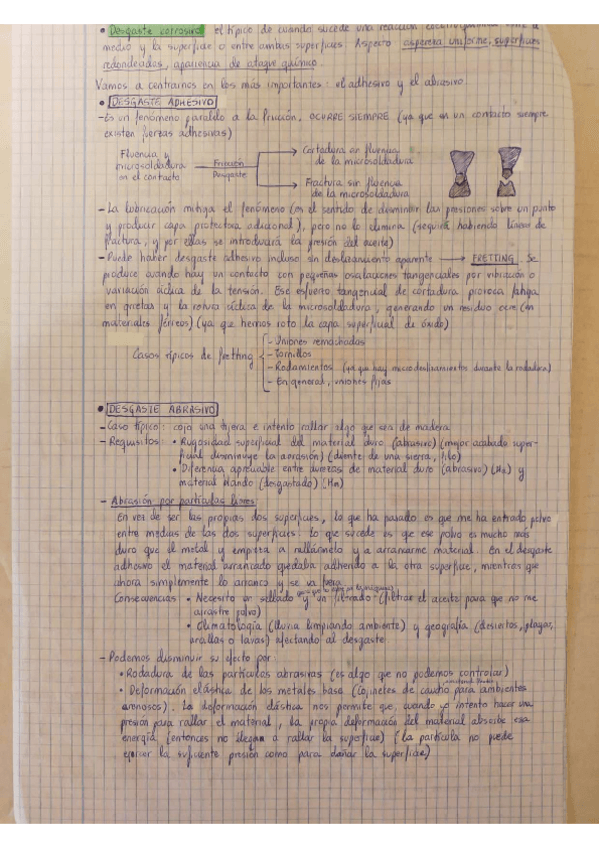 • Desgaste corrosivo: el típico de cuando sucede una reacción
medio y la superficie o entre ambas superficies. Aspecto aspereza uniforme, superficies
redondeadas, apariencia de ataque químico.
Vamos a centrarnos en los más importantes: el adhesivo y el abrasivo.
• DESGASTE ADHESIVO
- Es un fenómeno paralelo a la fricción, OCURRE SIEMPRE (ya que en un contacto siempre
existen fuerzas adhesivas)
Fluencia y
microsoldadura
en el contacto
Fricción
Desgaste
Cortadura en fluencia
de la microsoldadura
Fractura sin fluencia
de la microsoldadura
- La lubricación mitiga el fenómeno (en el sentido de disminuir las presiones sobre un punto
y producir capa protectora adicional), pero no lo elimina (seguirá habiendo líneas de
fractura, y por ellas se introducirá la presión del aceite)
- Puede haber desgaste adhesivo incluso sin deslizamiento aparente → FRETTING. Se
produce cuando hay un contacto con pequeñas oscilaciones tangenciales por vibración o
variación cíclica de la tensión. Ese esfuerzo tangencial de cortadura provoca fatiga
en grietas y la rotura cíclica de la microsoldadura, generando un residuo ocre (en
materiales férreos) (ya que hemos roto la capa superficial de óxido)
Casos típicos de fretting
- Uniones remachadas
- Tornillos
- Rodamientos (ya que hay microdeslizamientos durante la rodadura)
- En general, uniones fijas
• DESGASTE ABRASIVO
- Caso típico: cojo una tijera e intento rallar algo que sea de madera
- Requisitos: • Rugosidad superficial del material duro (abrasivo) (mejor acabado super-
ficial disminuye la abrasión) (diente de una sierra, filo)
• Diferencia apreciable entre durezas de material duro (abrasivo) (Ha) y
material blando (desgastado) (Hm)
- Abrasión por partículas libres:
En vez de ser las propias dos superficies, lo que ha pasado es que me ha entrado polvo
entre medias de las dos superficies. Lo que sucede es que ese polvo es mucho más
duro que el metal y empieza a rallármelo y a arrancarme material. En el desgaste
adhesivo el material arrancado quedaba adherido a la otra superficie, mientras que
ahora simplemente lo arranco y se va fuera.
Consecuencias • Necesito un sellado y un filtrado (filtrar el aceite para que no me
arrastre polvo)
• Climatología (lluvia limpiando ambiente) y geografía (desiertos, playas,
arcillas o lavas) afectando al desgaste.
- Podemos disminuir su efecto por:
• Rodadura de las partículas abrasivas (es algo que no podemos controlar)
• Deformación elástica de los metales base (cojinetes de caucho para ambientes
arenosos). La deformación elástica nos permite que, cuando yo intento hacer una
presión para rallar el material, la propia deformación del material absorbe esa
energía (entonces no llegan a rallar la superficie) (la partícula no puede
ejercer la suficiente presión como para dañar la superficie)